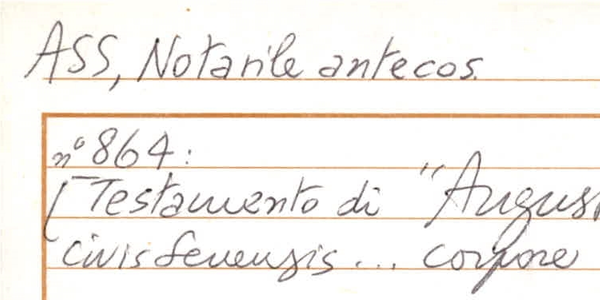 ASS, Notarile antecos.
n° 864:
[Testamento di "Augus
civis senensis... corpore